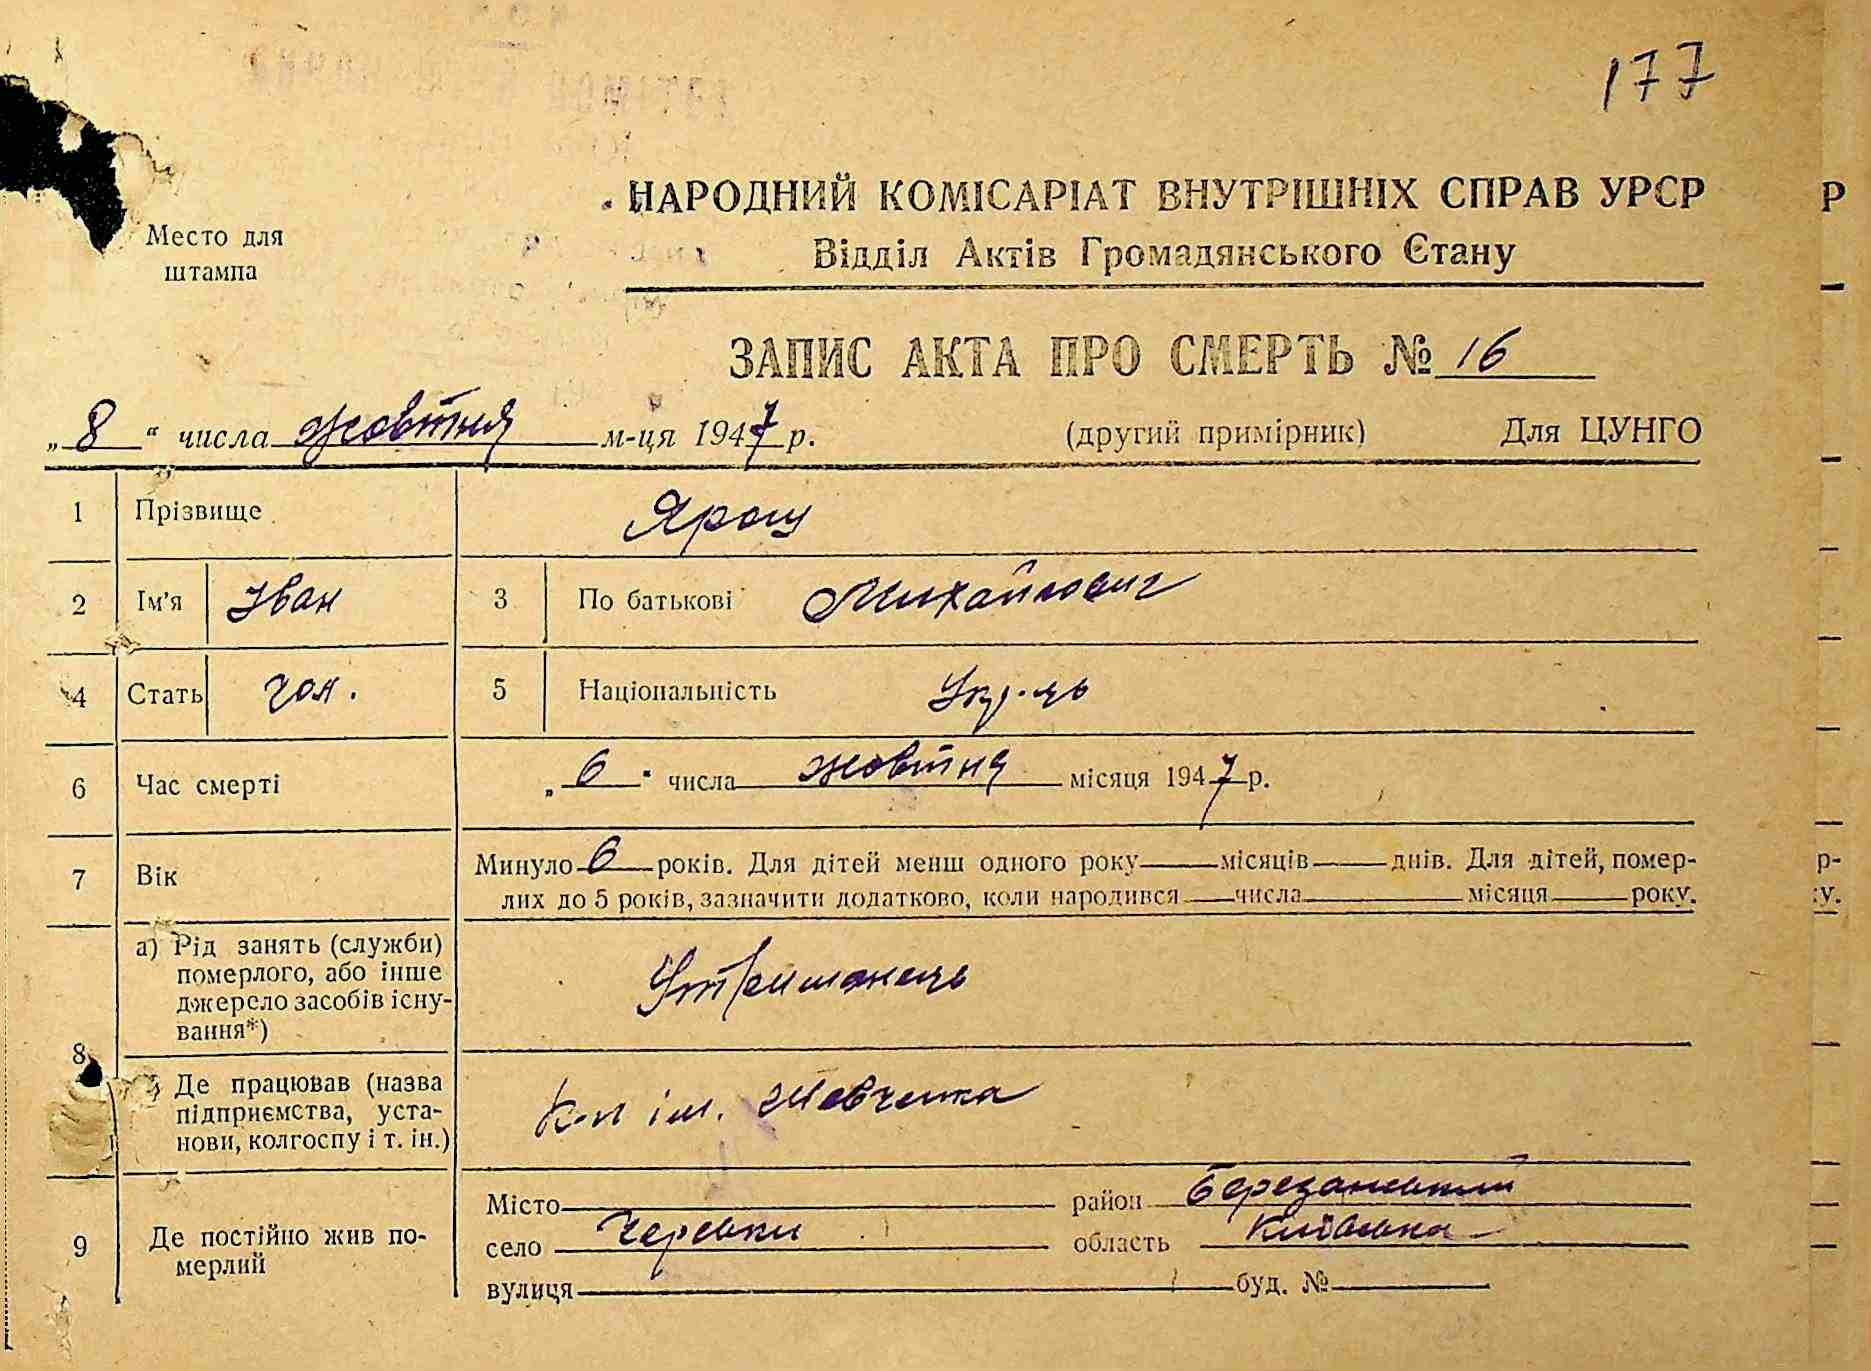 177
НАРОДНИЙ КОМІСАРІАТ ВНУТРІШНІХ СПРАВ УРСР
Р
Відділ Актів Громадянського Стану
Место для
штампа
ЗАПИС АКТА ПРО СМЕРТЬ № 16
„8“ числа жовтня м-ця 1947 р. (другий примірник) Для ЦУНГО
1 Прізвище Ярош
2 Ім'я Іван 3 По батькові Михайлович
4 Стать чол. 5 Національність Укр-ць
6 Час смерті „6“ числа жовтня місяця 1947 р.
7 Вік Минуло 6 років. Для дітей менш одного року місяців днів. Для дітей, помер-
лих до 5 років, зазначити додатково, коли народився числа місяця року.
р-
у.
8 а) Рід занять (служби)
померлого, або інше
джерело засобів існу-
вання*)
Утриманець
Де працював (назва
підприємства, уста-
нови, колгоспу і т. ін.)
К-п ім. Шевченка
9 Де постійно жив по-
мерлий
Місто район Березанський
село Черевки область Київська
вулиця буд. №